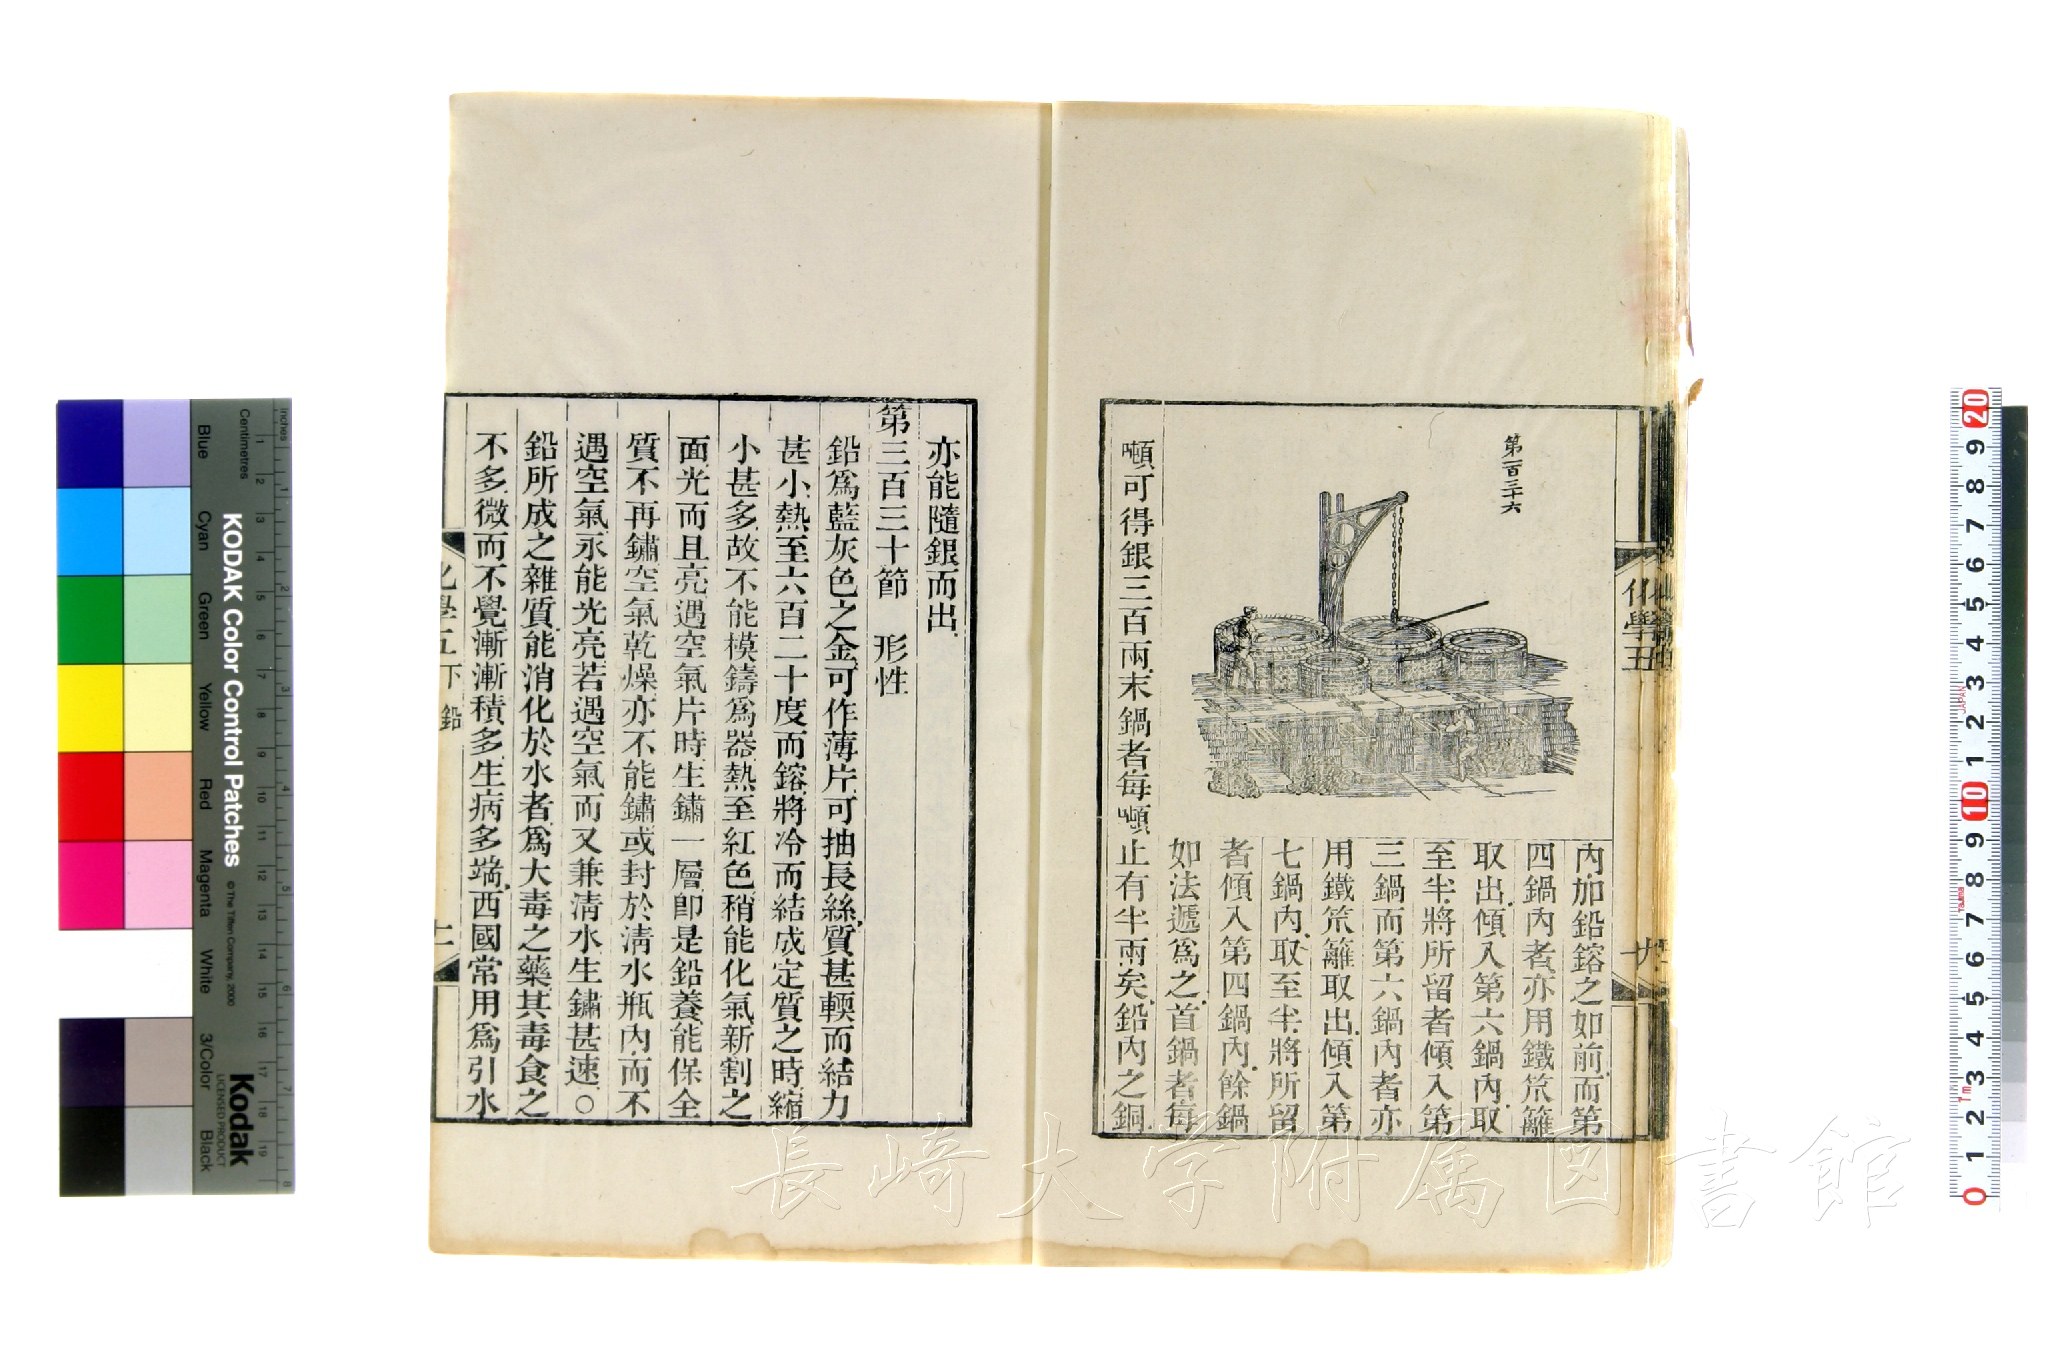 第一百三十六
內加鉛鎔之如前而第
四鍋內者亦用鐵笊籬
取出傾入第六鍋內取
至半將所留者傾入第
三鍋而第六鍋內者亦
用鐵笊籬取出傾入第
七鍋內取至半將所留
者傾入第四鍋內餘鍋
如法遞爲之首鍋者每
噸可得銀三百兩末鍋者每噸止有半兩矣鉛內之銅
亦能隨銀而出
第三百三十節 形性
鉛爲藍灰色之金可作薄片可抽長絲質甚輭而結力
甚小熱至六百二十度而鎔將冷而結成定質之時縮
小甚多故不能模鑄爲器熱至紅色稍能化氣新割之
面光而且亮遇空氣片時生鏽一層卽是鉛養能保全
質不再鏽空氣乾燥亦不能鏽或封於淸水瓶內而不
遇空氣永能光亮若遇空氣而又兼淸水生鏽甚速○
鉛所成之雜質能消化於水者爲大毒之藥其毒食之
不多微而不覺漸漸積多生病多端西國常用爲引水
化學五下 鉛
十一
長崎大学附属図書館
KODAK Color Control Patches
© The Tiffen Company, 2000
Kodak
LICENSED PRODUCT
Inches
Centimetres
Blue
Cyan
Green
Yellow
Red
Magenta
White
3/Color
Black
1 2 3 4 5 6 7 8 9 10 11 12 13 14 15 16 17 18 19
1 2 3 4 5 6 7 8
20 9 8 7 6 5 4 3 2 1 10 9 8 7 6 5 4 3 2 1 0
JAPAN
Tajima
7m